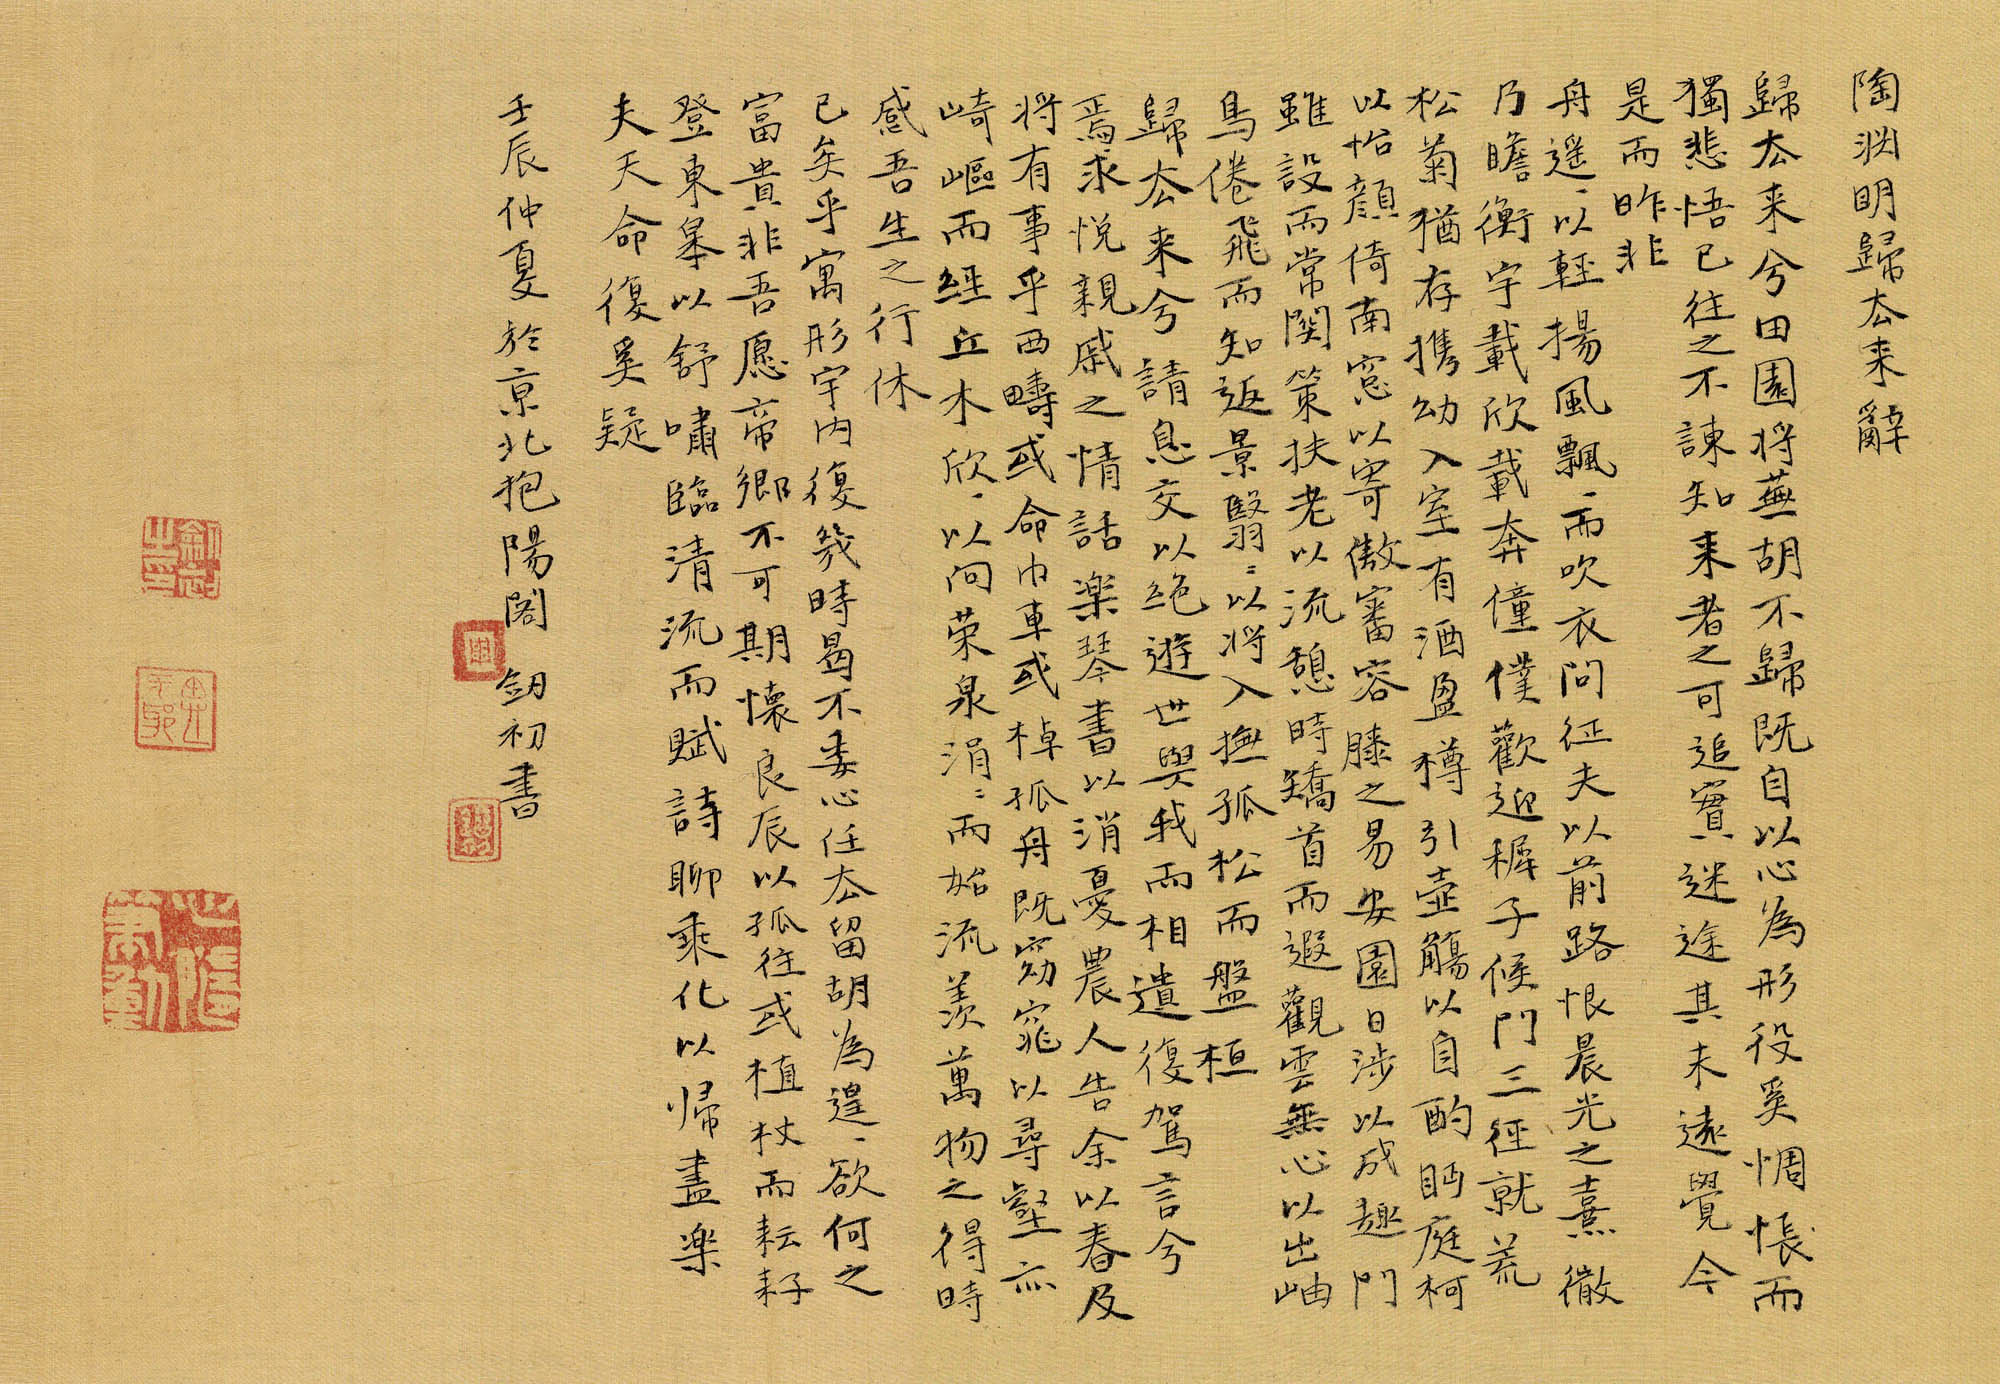 陶渊明歸去来辭
歸去来兮田園将蕪胡不歸既自以心為形役奚惆悵而
獨悲悟已往之不諫知来者之可追實迷途其未遠覺今
是而昨非
舟遥〻以輕揚風飄〻而吹衣問征夫以前路恨晨光之熹微
乃瞻衡宇載欣載奔僮僕歡迎稺子候門三徑就荒
松菊猶存携幼入室有酒盈樽引壺觴以自酌眄庭柯
以怡顔倚南窓以寄傲審容膝之易安園日涉以成趣門
雖設而常関策扶老以流憩時矯首而遐觀雲無心以出岫
鳥倦飛而知返景翳〻以将入撫孤松而盤桓
歸去来兮請息交以絶遊世與我而相遺復駕言兮
焉求悦親戚之情話楽琴書以消憂農人告余以春及
将有事乎西疇或命巾車或棹孤舟既窈窕以尋壑亦
崎嶇而經丘木欣〻以向荣泉涓〻而始流羡萬物之得時
感吾生之行休
已矣乎寓形宇内復幾時曷不委心任去留胡為遑〻欲何之
富貴非吾愿帝鄉不可期懷良辰以孤往或植杖而耘耔
登東皋以舒嘯臨清流而賦詩聊乘化以帰盡楽
夫天命復奚疑
壬辰仲夏於京北抱陽閣 劔初書